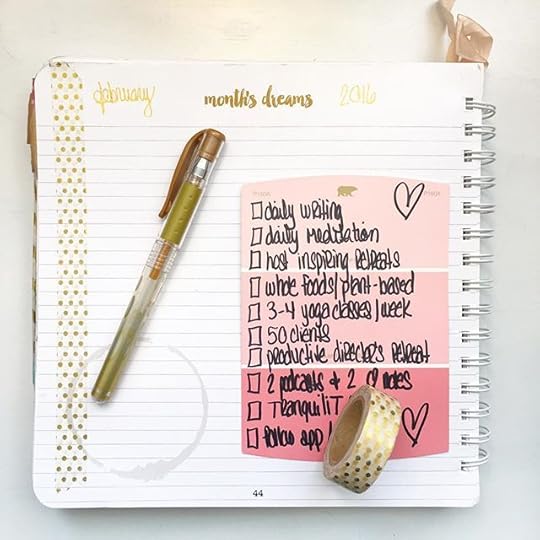 february month's dreams 2016
daily writing
daily meditation
host inspiring retreats
whole foods/plant-based
3-4 yoga classes/week
50 clients
productive director's retreat
2 podcasts & 2 ♡ notes
TranquiliT
follow app
44